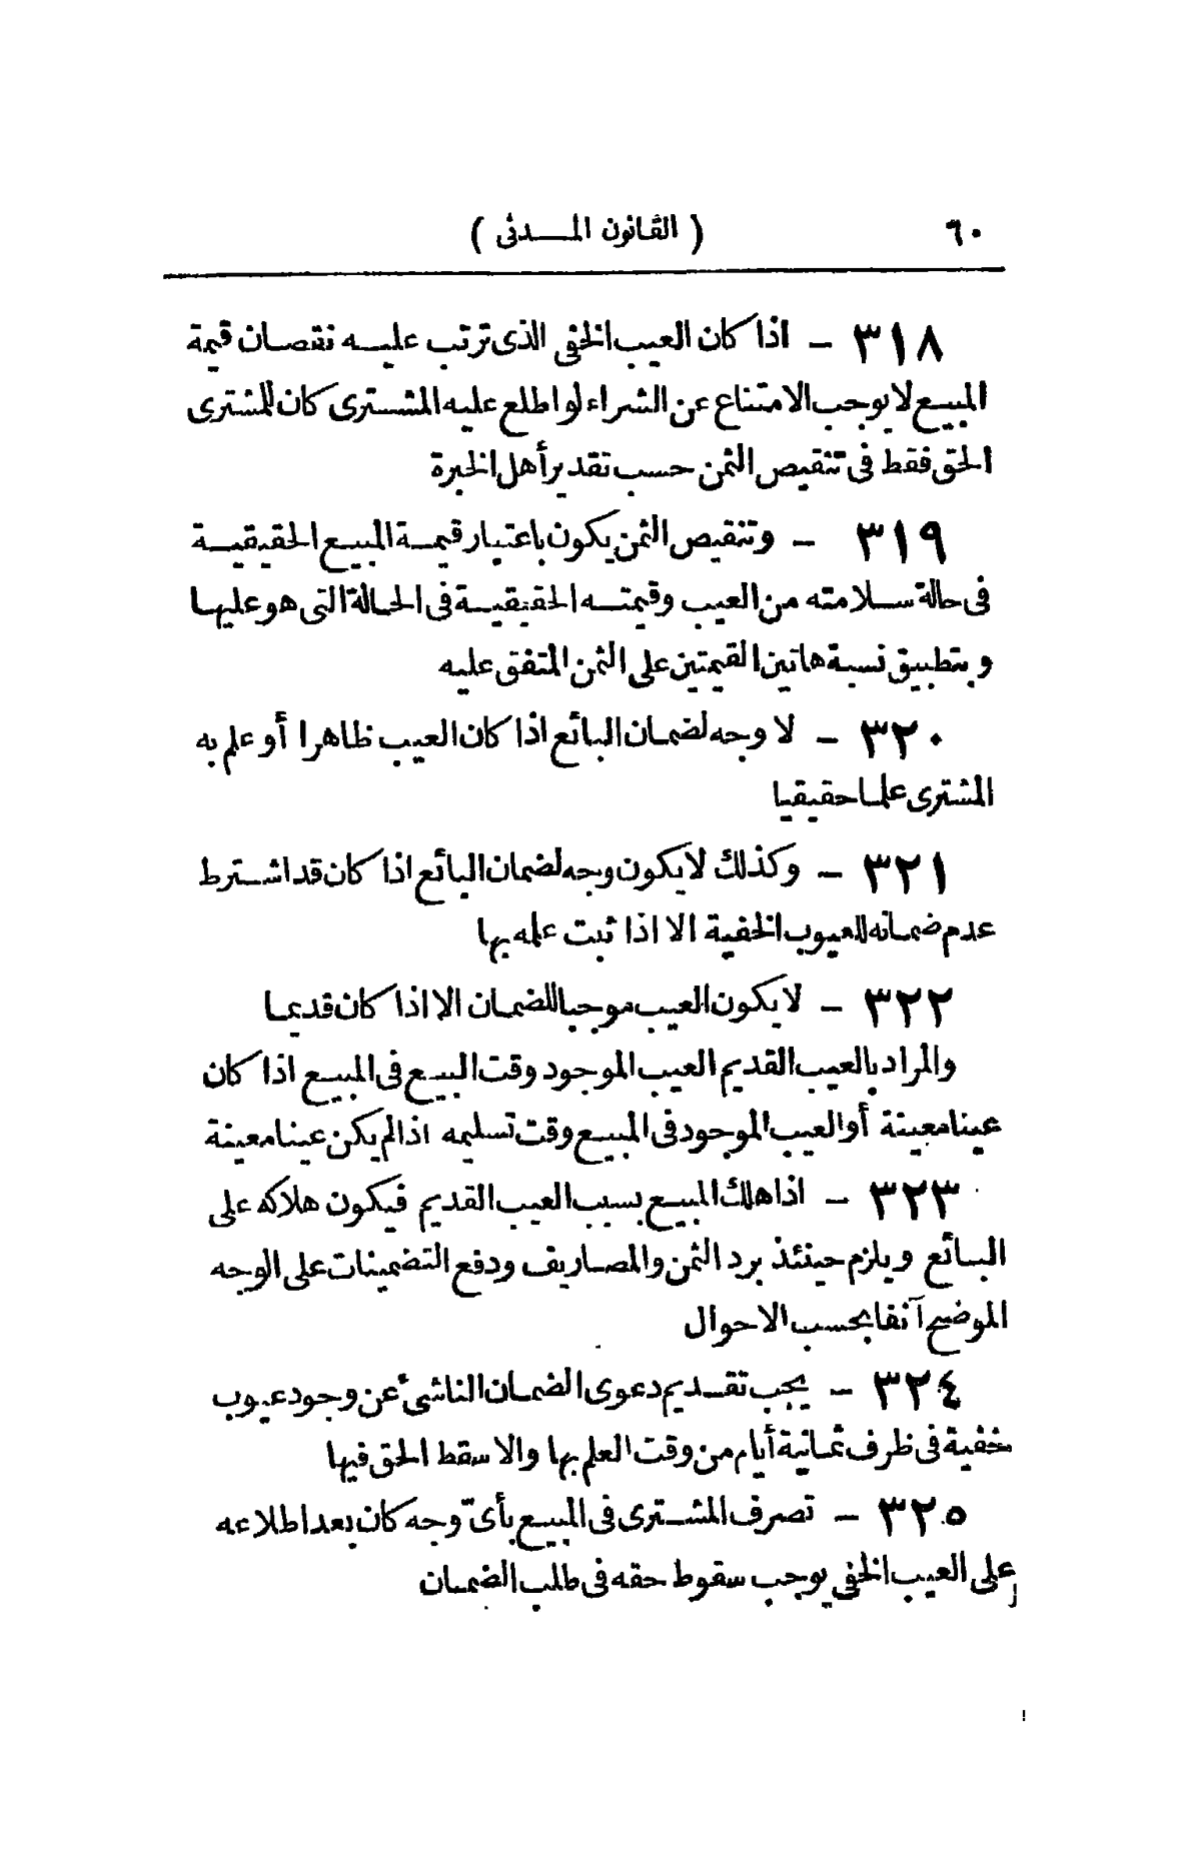 ٦٠
( القانون المدنى )
٣١٨ – اذا كان العيب الخفى الذى ترتب عليه نقصان قيمة
المبيع لا يوجب الامتناع عن الشراء لو اطلع عليه المشترى كان للمشترى
الحق فقط فى تنقيص الثمن حسب تقدير أهل الخبرة
٣١٩ – وتنقيص الثمن يكون باعتبار قيمة المبيع الحقيقية
فى حالة سلامته من العيب وقيمته الحقيقية فى الحالة التى هو عليها
وبتطبيق نسبة هاتين القيمتين على الثمن المتفق عليه
٣٢٠ – لا وجه لضمان البائع اذا كان العيب ظاهرا أو علم به
المشترى علما حقيقيا
٣٢١ – وكذلك لا يكون وجه لضمان البائع اذا كان قد اشترط
عدم ضمانه للعيوب الخفية الا اذا ثبت علمه بها
٣٢٢ – لا يكون العيب موجبا للضمان الا اذا كان قديما
والمراد بالعيب القديم العيب الموجود وقت البيع فى المبيع اذا كان
عينا معينة أو العيب الموجود فى المبيع وقت تسليمه اذا لم يكن عينا معينة
٣٢٣ – اذا هلك المبيع بسبب العيب القديم فيكون هلاكه على
البائع ويلزم حينئذ برد الثمن والمصاريف ودفع التضمينات على الوجه
الموضح آنفا بحسب الاحوال
٣٢٤ – يجب تقديم دعوى الضمان الناشئ عن وجود عيوب
خفية فى ظرف ثمانية أيام من وقت العلم بها والا سقط الحق فيها
٣٢٥ – تصرف المشترى فى المبيع بأىّ وجه كان بعد اطلاعه
على العيب الخفى يوجب سقوط حقه فى طلب الضمان